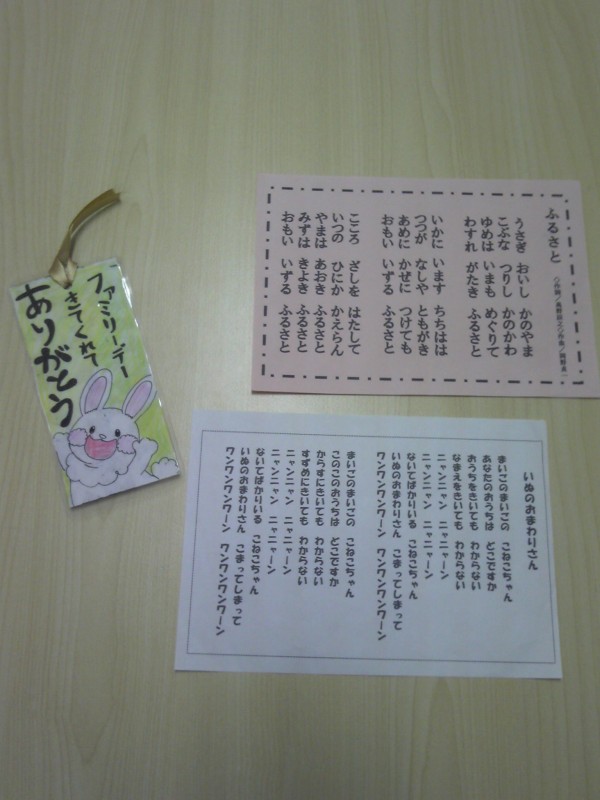 ファミリーデー
きてくれて
ありがとう
ふるさと
◇作詞/高野辰之◇作曲/岡野貞一
うさぎ おいし かのやま
こぶな つりし かのかわ
ゆめは いまも めぐりて
わすれ がたき ふるさと
いかに います ちちはは
つつが なしや ともがき
あめに かぜに つけても
おもい いずる ふるさと
こころ ざしを はたして
いつの ひにか かえらん
やまは あおき ふるさと
みずは きよき ふるさと
おもい いずる ふるさと
いぬのおまわりさん
まいごのまいごの こねこちゃん
あなたのおうちは どこですか
おうちをきいても わからない
なまえをきいても わからない
ニャンニャン ニャニャーン
ニャンニャン ニャニャーン
ないてばかりいる こねこちゃん
いぬのおまわりさん こまってしまって
ワンワンワンワーン ワンワンワンワーン
まいごのまいごの こねこちゃん
このこのおうちは どこですか
からすにきいても わからない
すずめにきいても わからない
ニャンニャン ニャニャーン
ニャンニャン ニャニャーン
ないてばかりいる こねこちゃん
いぬのおまわりさん こまってしまって
ワンワンワンワーン ワンワンワンワーン